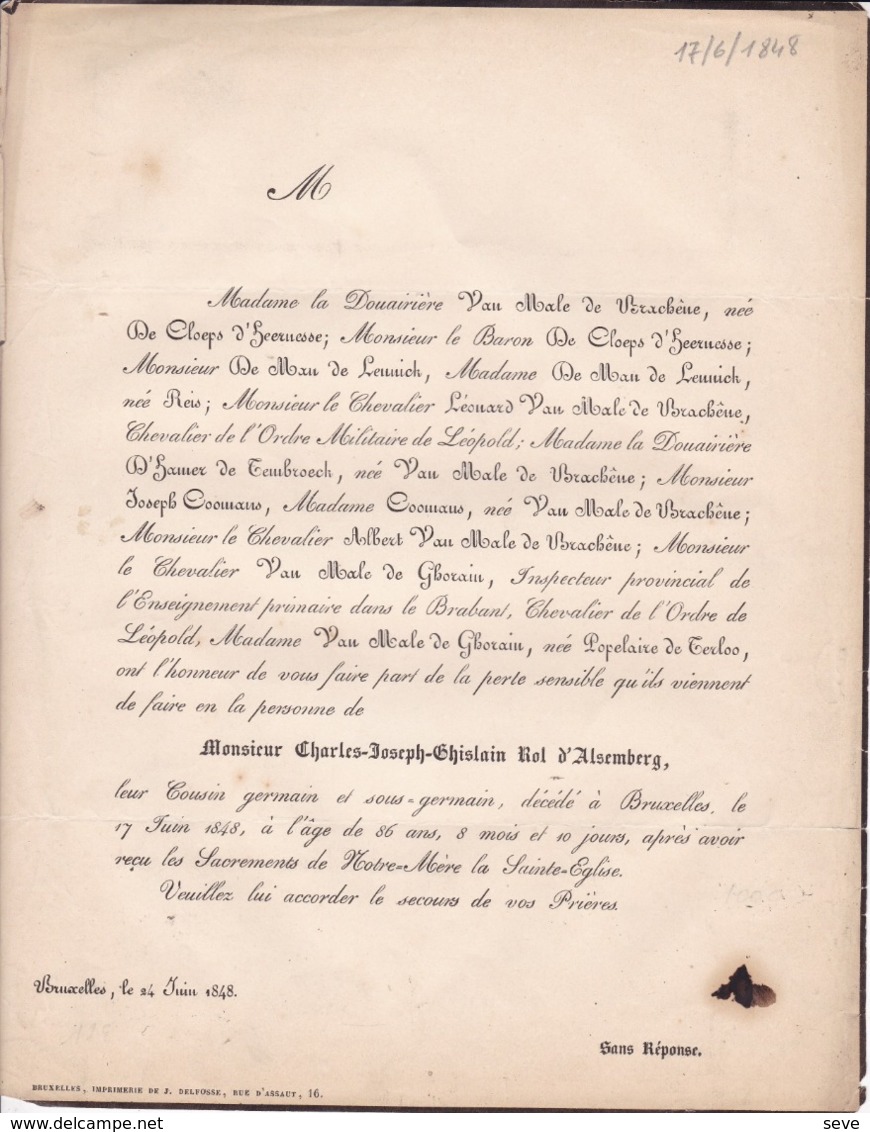 17/6/1848
M
Madame la Douairière Van Male de Brachène, neé
De Cloeps d'Heernesse; Monsieur le Baron De Cloeps d'Heernesse;
Monsieur De Man de Lennick, Madame De Man de Lennick,
neé Reis; Monsieur le Chevalier Léonard Van Male de Brachêne,
Chevalier de l'Ordre Militaire de Léopold; Madame la Douairière
D'Hamer de Tembroeck, neé Van Male de Brachêne; Monsieur
Joseph Coomans, Madame Coomans, neé Van Male de Brachêne;
Monsieur le Chevalier Albert Van Male de Brachêne; Monsieur
le Chevalier Van Male de Ghorain, Inspecteur provincial de
l'Enseignement primaire dans le Brabant, Chevalier de l'Ordre de
Léopold, Madame Van Male de Ghorain, neé Popelaire de Terloo,
ont l'honneur de vous faire part de la perte sensible qu'ils viennent
de faire en la personne de
Monsieur Charles-Joseph-Ghislain Rol d'Alsemberg,
leur Cousin germain et sous-germain, décédé à Bruxelles, le
17 Juin 1848, à l'âge de 86 ans, 8 mois et 10 jours, après avoir
reçu les Sacrements de Notre-Mère la Sainte-Eglise.
Veuillez lui accorder le secours de vos Prières.
Bruxelles, le 24 Juin 1848.
Sans Réponse.
BRUXELLES, IMPRIMERIE DE J. DELFOSSE, RUE D'ASSAUT, 16.
delcampe.net
seve